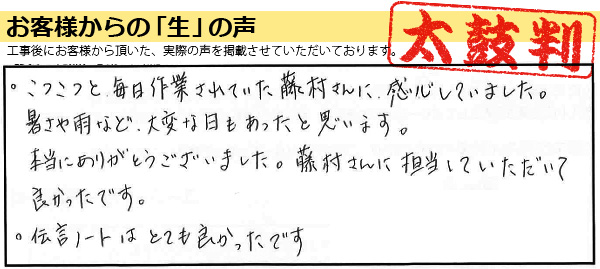 お客様からの「生」の声
太鼓判
工事後にお客様から頂いた、実際の声を掲載させていただいております。
。こつこつと、毎日作業されていた藤村さんに、感心していました。
暑さや雨など、大変な日もあったと思います。
本当にありがとうございました。藤村さんに担当していただいて
良かったです。
。伝言ノートはとても良かったです